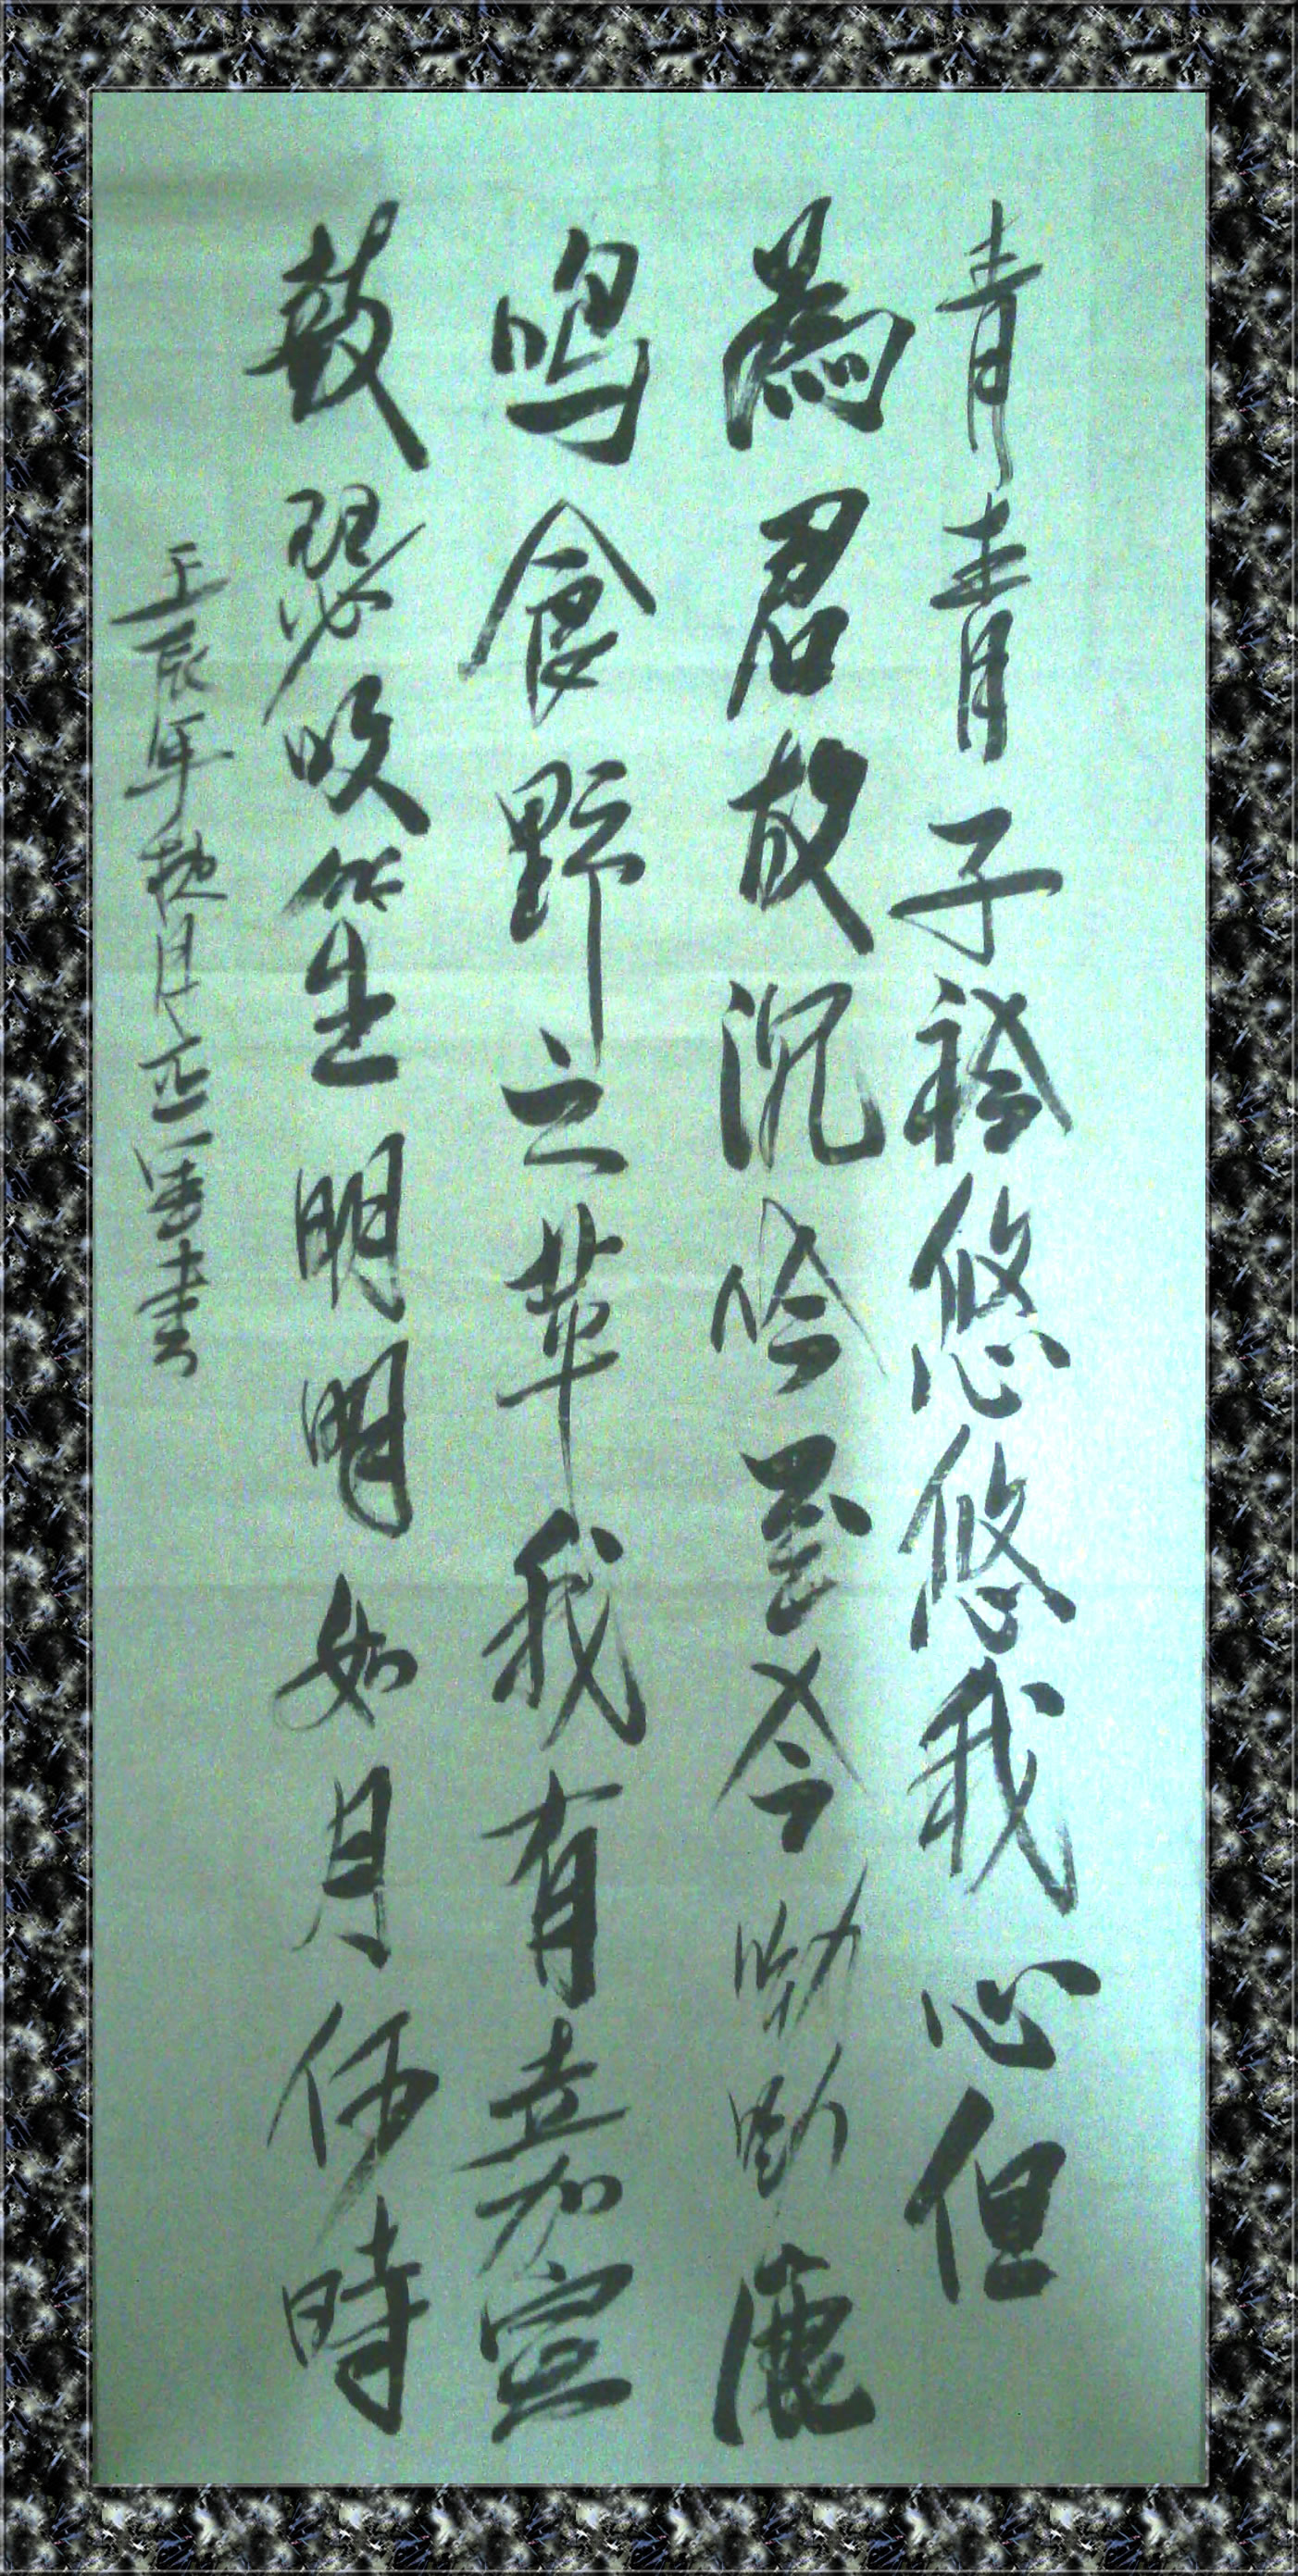 青青子衿悠悠我心但
為君故沉吟至今呦呦鹿
鳴食野之苹我有嘉賓
鼓瑟吹笙明明如月何時
壬辰年秋月正軍書